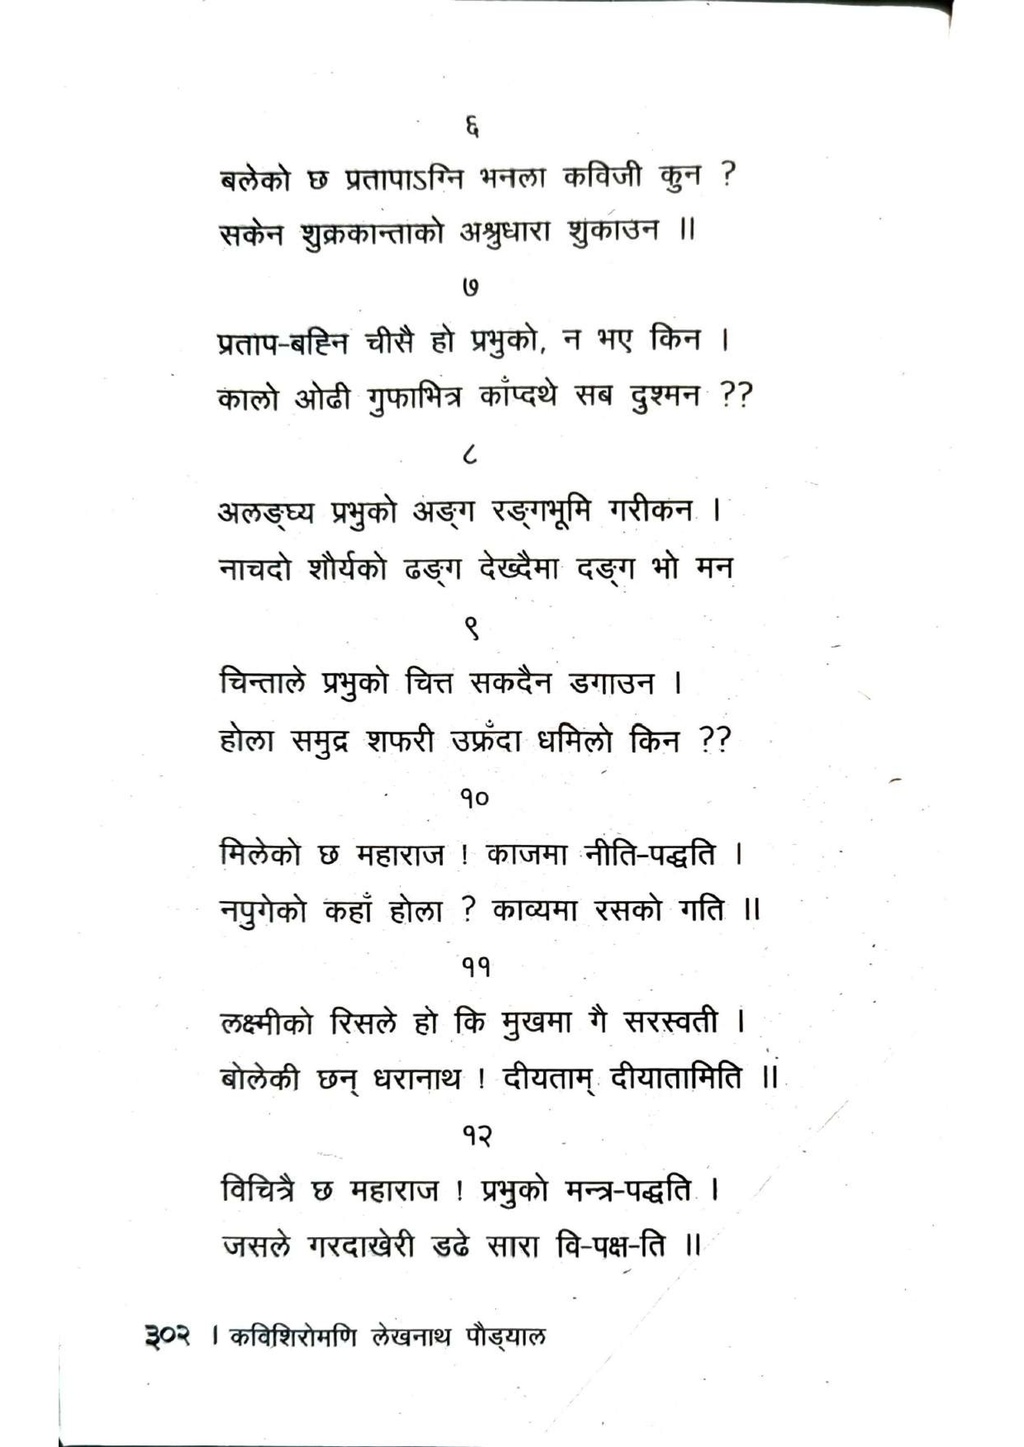 ६
बलेको छ प्रतापाऽग्नि भनला कविजी कुन ?
सकेन शुक्रकान्ताको अश्रुधारा शुकाउन ॥
७
प्रताप-बह्नि चीसै हो प्रभुको, न भए किन ।
कालो ओढी गुफाभित्र काँप्दथे सब दुश्मन ??
८
अलङ्घ्य प्रभुको अङ्ग रङ्गभूमि गरीकन ।
नाचदो शौर्यको ढङ्ग देख्दैमा दङ्ग भो मन
९
चिन्ताले प्रभुको चित्त सकदैन डगाउन ।
होला समुद्र शफरी उफ्रँदा धमिलो किन ??
१०
मिलेको छ महाराज ! काजमा नीति-पद्धति ।
नपुगेको कहाँ होला ? काव्यमा रसको गति ॥
११
लक्ष्मीको रिसले हो कि मुखमा गै सरस्वती ।
बोलेकी छन् धरानाथ ! दीयताम् दीयातामिति ॥
१२
विचित्रै छ महाराज ! प्रभुको मन्त्र-पद्धति ।
जसले गरदाखेरी डढे सारा वि-पक्ष-ति ॥
३०२ । कविशिरोमणि लेखनाथ पौड्याल